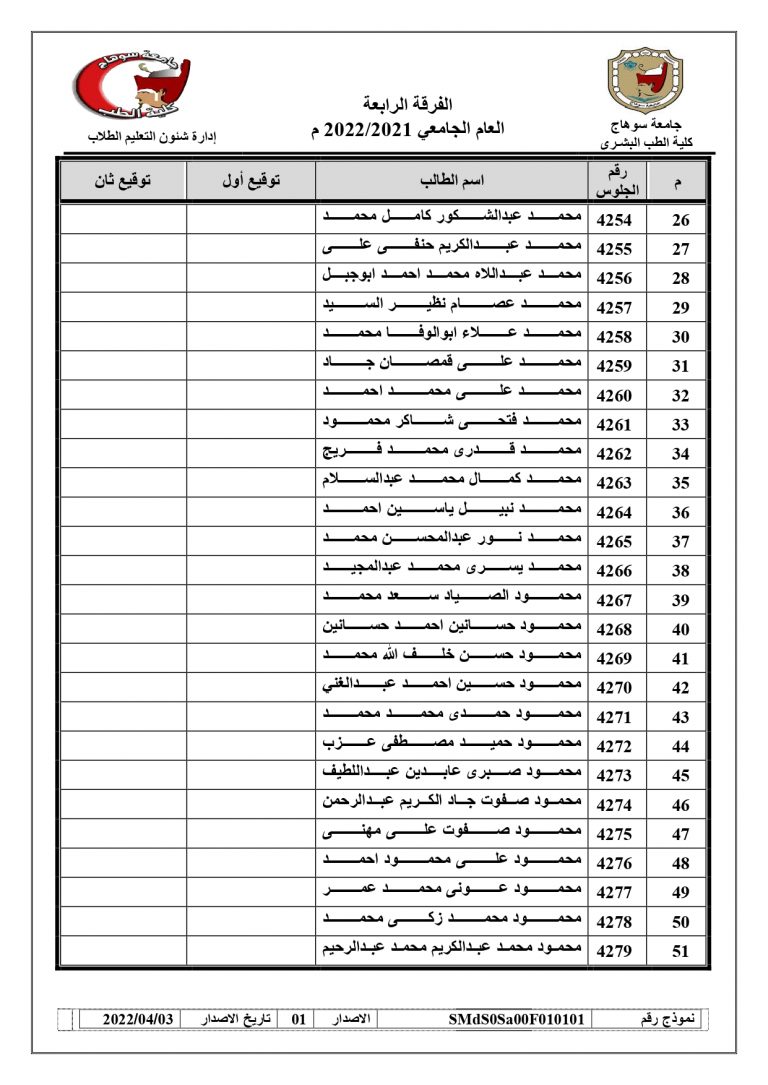 جامعة سوهاج
كلية الطب
الفرقة الرابعة
العام الجامعي 2022/2021 م
جامعة سوهاج
كلية الطب البشرى
إدارة شئون التعليم الطلاب
م رقم الجلوس اسم الطالب توقيع أول توقيع ثان
26 4254 محمد عبدالشكور كامل محمد
27 4255 محمد عبدالكريم حنفى على
28 4256 محمد عبداللاه محمد احمد ابوجبل
29 4257 محمد عصام نظير السيد
30 4258 محمد علاء ابوالوفا محمد
31 4259 محمد على قمصان جاد
32 4260 محمد على محمد احمد
33 4261 محمد فتحى شاكر محمود
34 4262 محمد قدرى محمد فريج
35 4263 محمد كمال محمد عبدالسلام
36 4264 محمد نبيل ياسين احمد
37 4265 محمد نور عبدالمحسن محمد
38 4266 محمد يسرى محمد عبدالمجيد
39 4267 محمود الصياد سعد محمد
40 4268 محمود حسانين احمد حسانين
41 4269 محمود حسن خلف الله محمد
42 4270 محمود حسين احمد عبدالغني
43 4271 محمود حمدى محمد محمد
44 4272 محمود حميد مصطفى عزب
45 4273 محمود صبرى عابدين عبداللطيف
46 4274 محمود صفوت جاد الكريم عبدالرحمن
47 4275 محمود صفوت على مهنى
48 4276 محمود على محمود احمد
49 4277 محمود عونى محمد عمر
50 4278 محمود محمد زكى محمد
51 4279 محمود محمد عبدالكريم محمد عبدالرحيم
نموذج رقم SMdS0Sa00F010101 الاصدار 01 تاريخ الاصدار 2022/04/03